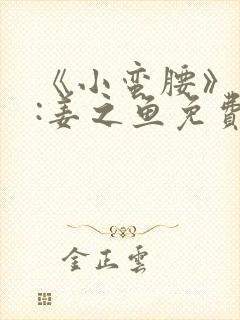 《小蛮腰》
:姜之鱼免費
金正雲